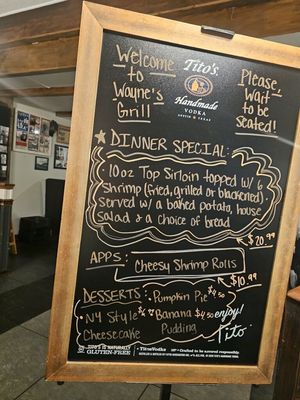 Welcome
to
Wayne's
Grill
Tito's
Handmade
VODKA
AUSTIN TEXAS
Please
Wait
to be
Seated!
DINNER SPECIAL:
10oz Top Sirloin topped w/ 6
Shrimp (fried, grilled or blackened)
served w/ a baked potato, house
salad & a choice of bread
$20.99
APPS: Cheesy Shrimp Rolls
$10.99
DESSERTS: Pumpkin Pie $4.50
NY Style Banana $4.50
Cheesecake Pudding
enjoy!
Tito
TITO'S IS NATURALLY
GLUTEN-FREE